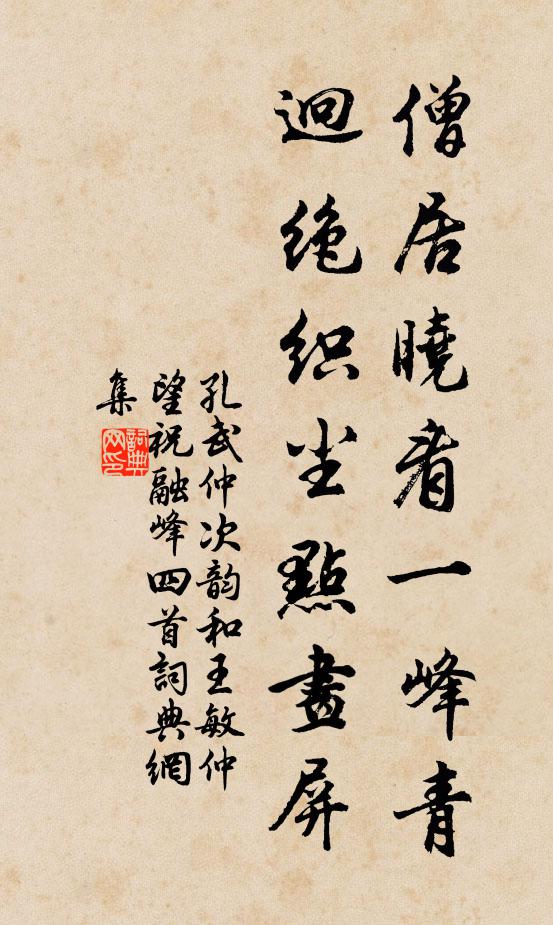 僧居曉看一峰青
迥絶织尘點畫屏
孔武仲次韵和王敏仲
望祝融峰四首詞典網
集
詞典網印